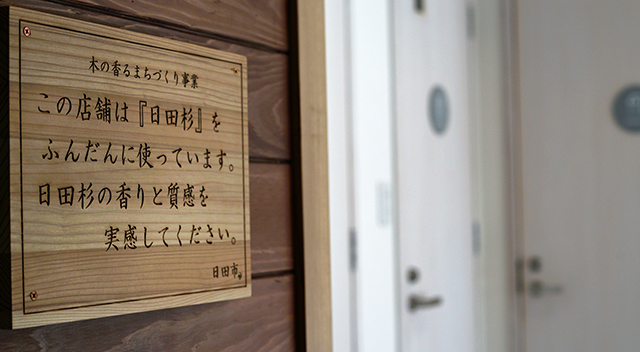 木の香るまちづくり事業
この店舗は『日田杉』を
ふんだんに使っています。
日田杉の香りと質感を
実感してください。
日田市